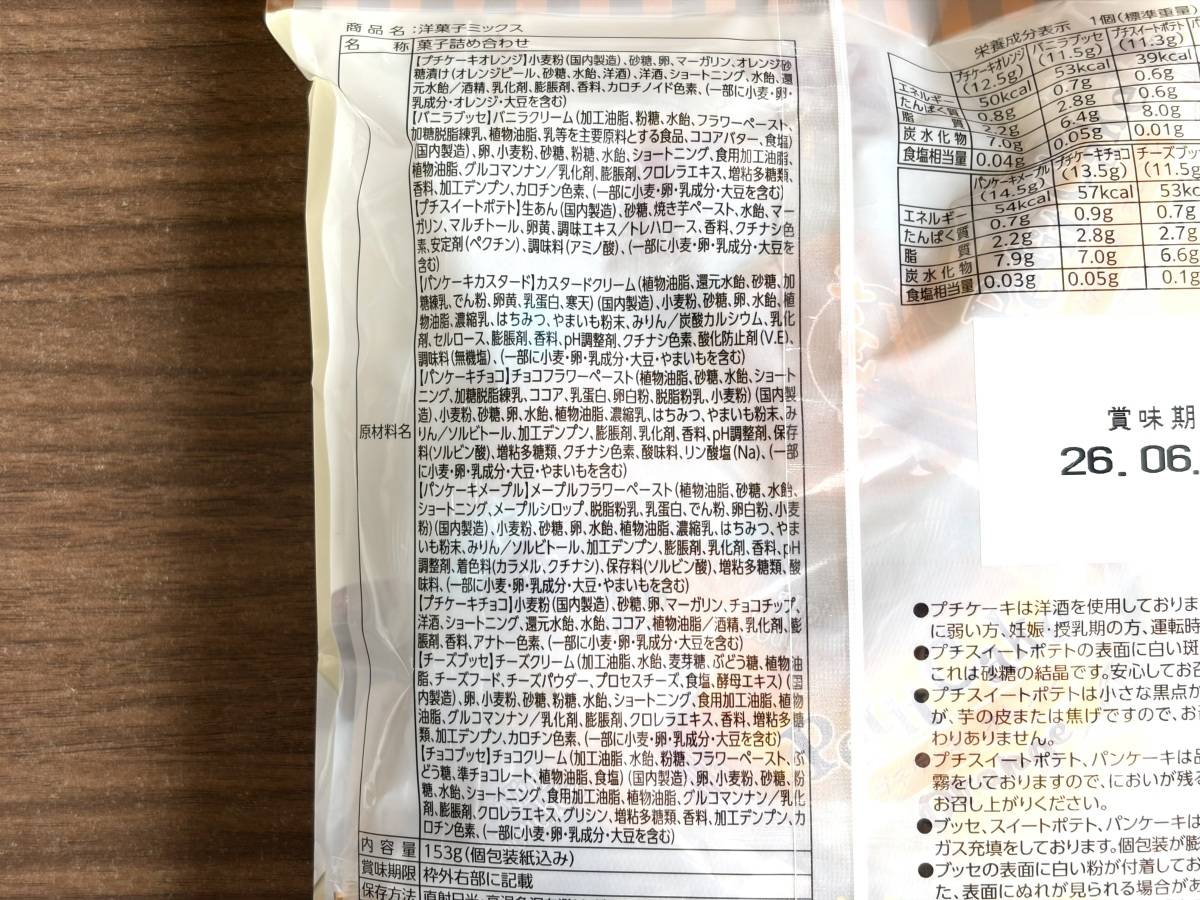 商品名:洋菓子ミックス
名称 菓子詰め合わせ
原材料名
【プチケーキオレンジ】小麦粉(国内製造)、砂糖、卵、マーガリン、オレンジ砂
糖漬け(オレンジピール、砂糖、水飴、洋酒)、洋酒、ショートニング、水飴、還
元水飴/酒精、乳化剤、膨脹剤、香料、カロチノイド色素、(一部に小麦・卵・
乳成分・オレンジ・大豆を含む)
【バニラブッセ】バニラクリーム(加工油脂、粉糖、水飴、フラワーペースト、
加糖脱脂練乳、植物油脂、乳等を主要原料とする食品、ココアバター、食塩)
(国内製造)、卵、小麦粉、砂糖、粉糖、水飴、ショートニング、食用加工油脂、
植物油脂、グルコマンナン/乳化剤、膨脹剤、クロレラエキス、増粘多糖類、
香料、加工デンプン、カロチン色素、(一部に小麦・卵・乳成分・大豆を含む)
【プチスイートポテト】生あん(国内製造)、砂糖、焼き芋ペースト、水飴、マー
ガリン、マルチトール、卵黄、調味エキス/トレハロース、香料、クチナシ色
素、安定剤(ペクチン)、調味料(アミノ酸)、(一部に小麦・卵・乳成分・大豆を
含む)
【パンケーキカスタード】カスタードクリーム(植物油脂、還元水飴、砂糖、加
糖練乳、でん粉、卵黄、乳蛋白、寒天)(国内製造)、小麦粉、砂糖、卵、水飴、植
物油脂、濃縮乳、はちみつ、やまいも粉末、みりん/炭酸カルシウム、乳化
剤、セルロース、膨脹剤、香料、pH調整剤、クチナシ色素、酸化防止剤(V.E)、
調味料(無機塩)、(一部に小麦・卵・乳成分・大豆・やまいもを含む)
【パンケーキチョコ】チョコフラワーペースト(植物油脂、砂糖、水飴、ショート
ニング、加糖脱脂練乳、ココア、乳蛋白、卵白粉、脱脂粉乳、小麦粉)(国内製
造)、小麦粉、砂糖、卵、水飴、植物油脂、濃縮乳、はちみつ、やまいも粉末、み
りん/ソルビトール、加工デンプン、膨脹剤、乳化剤、香料、pH調整剤、保存
料(ソルビン酸)、増粘多糖類、クチナシ色素、酸味料、リン酸塩(Na)、(一部
に小麦・卵・乳成分・大豆・やまいもを含む)
【パンケーキメープル】メープルフラワーペースト(植物油脂、砂糖、水飴、
ショートニング、メープルシロップ、脱脂粉乳、乳蛋白、でん粉、卵白粉、小麦
粉)(国内製造)、小麦粉、砂糖、卵、水飴、植物油脂、濃縮乳、はちみつ、やま
いも粉末、みりん/ソルビトール、加工デンプン、膨脹剤、乳化剤、香料、pH
調整剤、着色料(カラメル、クチナシ)、保存料(ソルビン酸)、増粘多糖類、酸
味料、(一部に小麦・卵・乳成分・大豆・やまいもを含む)
【プチケーキチョコ】小麦粉(国内製造)、砂糖、卵、マーガリン、チョコチップ、
洋酒、ショートニング、還元水飴、水飴、ココア、植物油脂/酒精、乳化剤、膨
脹剤、香料、アナトー色素、(一部に小麦・卵・乳成分・大豆を含む)
【チーズブッセ】チーズクリーム(加工油脂、水飴、麦芽糖、ぶどう糖、植物油
脂、チーズフード、チーズパウダー、プロセスチーズ、食塩、酵母エキス)(国
内製造)、卵、小麦粉、砂糖、粉糖、水飴、ショートニング、食用加工油脂、植物
油脂、グルコマンナン/乳化剤、膨脹剤、クロレラエキス、香料、増粘多糖
類、加工デンプン、カロチン色素、(一部に小麦・卵・乳成分・大豆を含む)
【チョコブッセ】チョコクリーム(加工油脂、水飴、粉糖、フラワーペースト、ぶ
どう糖、準チョコレート、植物油脂、食塩)(国内製造)、卵、小麦粉、砂糖、粉
糖、水飴、ショートニング、食用加工油脂、植物油脂、グルコマンナン/乳化
剤、膨脹剤、クロレラエキス、グリシン、増粘多糖類、香料、加工デンプン、カ
ロチン色素、(一部に小麦・卵・乳成分・大豆を含む)
内容量 153g(個包装紙込み)
賞味期限 枠外右部に記載
保存方法
栄養成分表示 1個(標準重量)
プチケーキオレンジ バニラブッセ プチスイートポテト
(12.5g) (11.5g) (11.3g)
エネルギー 50kcal 53kcal 39kcal
たんぱく質 0.8g 0.7g 0.6g
脂質 2.2g 2.8g 0.6g
炭水化物 7.0g 6.4g 8.0g
食塩相当量 0.04g 0.05g 0.01g
パンケーキメープル プチケーキチョコ チーズブッセ
(14.5g) (13.5g) (11.5g)
エネルギー 54kcal 57kcal 53kc
たんぱく質 0.7g 0.9g 0.7g
脂質 2.2g 2.8g 2.7g
炭水化物 7.9g 7.0g 6.6g
食塩相当量 0.03g 0.05g 0.1g
賞味期
26.06.
●プチケーキは洋酒を使用しておりま
に弱い方、妊娠・授乳期の方、運転時
●プチスイートポテトの表面に白い斑
これは砂糖の結晶です。安心してお召
●プチスイートポテトは小さな黒点が
が、芋の皮または焦げですので、お
わりありません。
●プチスイートポテト、パンケーキは
霧をしておりますので、においが残る
お召し上がりください。
●ブッセ、スイートポテト、パンケーキは
ガス充填をしております。個包装が膨
●ブッセの表面に白い粉が付着してお
た、表面にぬれが見られる場合があ